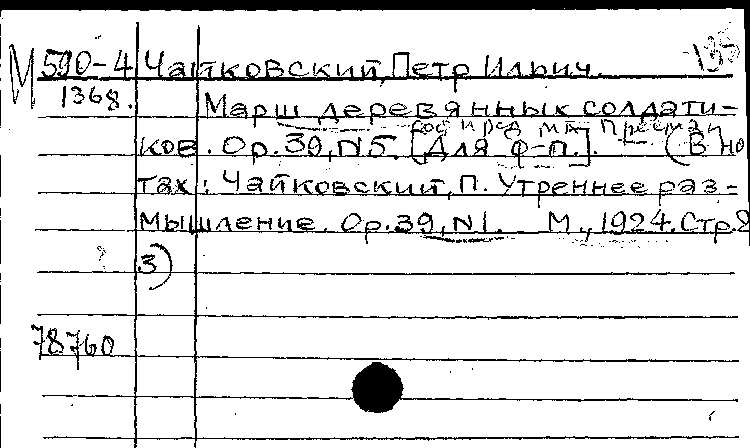 М 590-4 Чайковский, Петр Ильич. 135
1368. Марш деревянных солдати-
ков. Ор.39, N5. [Для ф-п.]. — (В но
тах: Чайковский, П. Утреннее раз-
мышление. Ор.39, N1. М., 1924. Стр.2
3)
78760